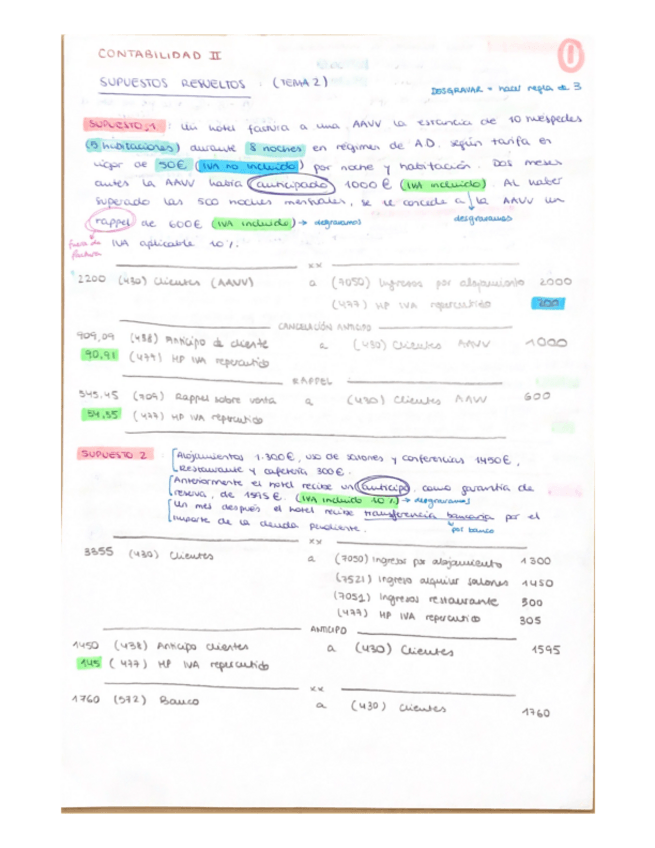 CONTABILIDAD II
SUPUESTOS RESUELTOS. (TEMA 2)
DESGRAVAR = hacer regla de 3
SUPUESTO 1: Un hotel factura a una AAVV la estancia de 10 huéspedes
(5 habitaciones) durante 8 noches en régimen de AD. según tarifa en
vigor de 50€ (IVA no incluido) por noche y habitación. Dos meses
antes la AAVV había anticipado 1000 € (IVA incluido). Al haber
superado las 500 noches mensuales, se le concede a la AAVV un
rappel de 600€ (IVA incluido) → desgravamos
desgravamos
fuera de factura
IVA aplicable 10%.
xx
2200 (430) Clientes (AAVV) a (7050) Ingresos por alojamiento 2000
(477) HP IVA repercutido 200
CANCELACIÓN ANTICIPO
909,09 (438) Anticipo de cliente a (430) Clientes AAVV 1000
90,91 (477) HP IVA repercutido
RAPPEL
545,45 (709) Rappel sobre venta a (430) Clientes AAVV 600
54,55 (477) HP IVA repercutido
SUPUESTO 2
Alojamientos 1.300€, uso de salones y conferencias 1450€,
Restaurante y cafetería 300€.
Anteriormente el hotel recibe un anticipo, como garantía de
reserva, de 1595€. (IVA incluido 10%) → desgravamos
Un mes después el hotel recibe transferencia bancaria por el
importe de la deuda pendiente.
por banco
xx
3355 (430) Clientes a (7050) Ingresos por alojamiento 1300
(7521) Ingreso alquiler salones 1450
(7051) Ingresos restaurante 300
(477) HP IVA repercutido 305
ANTICIPO
1450 (438) Anticipo clientes a (430) Clientes 1595
145 (477) HP IVA repercutido
xx
1760 (572) Banco a (430) Clientes 1760